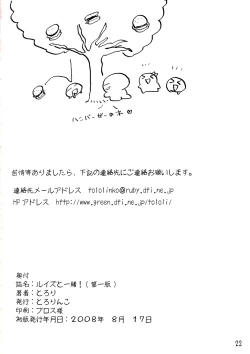 ハンバーガーの木
苦情等ありましたら、下記の連絡先にご連絡お願いします。
連絡先メールアドレス tololinko@ruby.dti.ne.jp
HPアドレス http://www.green.dti.ne.jp/tololi/
奥付
誌名：ルイズと一緒！（第一版）
著者：とろり
発行：とろりんこ
印刷：プロス様
初版発行年月日：2008年 8月 17日
22